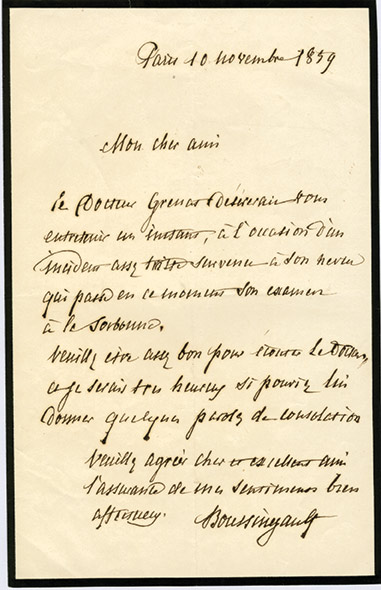 Paris 10 novembre 1859
Mon cher ami
Le Docteur Grenat désirerait vous
entretenir un instant, à l'occasion d'un
incident assez triste survenu à son neveu
qui passe en ce moment son examen
à la Sorbonne.
Veuillez être assez bon pour écouter le Docteur,
et je serais très heureux si pouviez lui
donner quelques paroles de consolation
Veuillez agréer cher et excellent ami
l'assurance de mes sentiments bien
affectueux. Boussingault